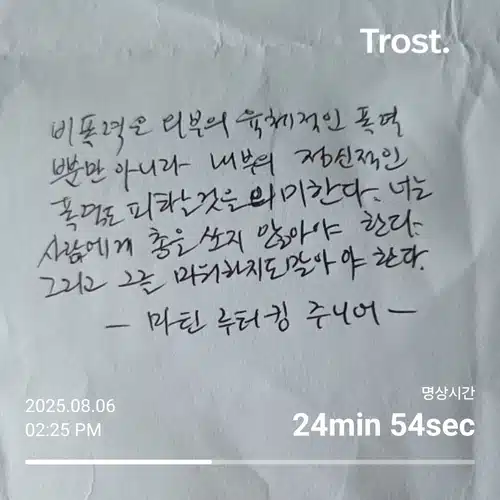 Trost.
비폭력은 외부의 육체적인 폭력
뿐만 아니라 내부의 정신적인
폭력도 피하는것을 의미한다. 너는
사람에게 총을 쏘지 않아야 한다.
그리고 그를 미워하지도말아 야 한다.
— 마틴 루터킹 주니어 —
명상시간
2025.08.06
24min 54sec
02:25 PM